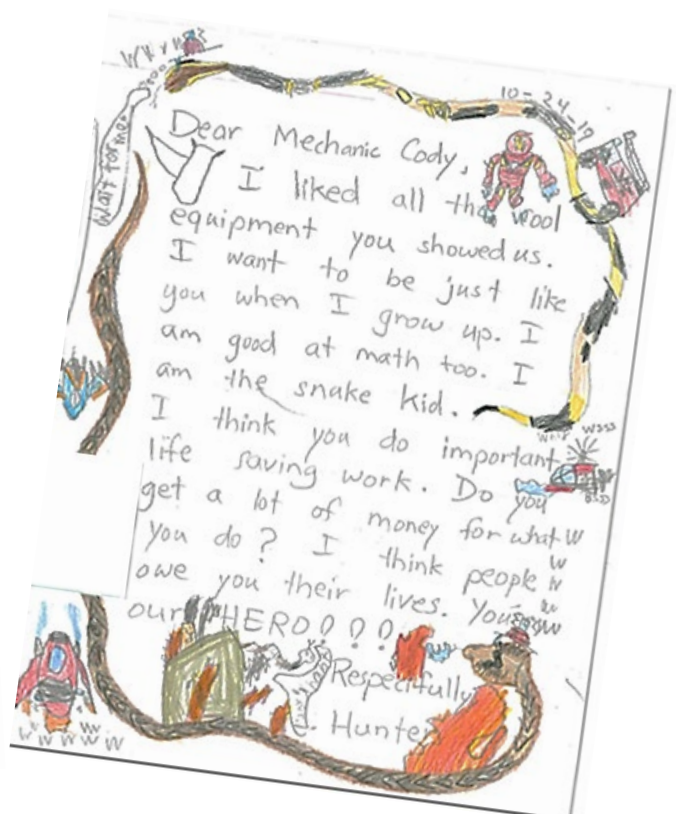 10-24-19
wait for me.
Dear Mechanic Cody,
I liked all the wool
equipment you showed us.
I want to be just like
you when I grow up. I
am good at math too. I
am the snake kid.
I think you do important
life saving work. Do you
get a lot of money for what
you do? I think people
owe you their lives. You
our HERO???
Respecifully
Hunter